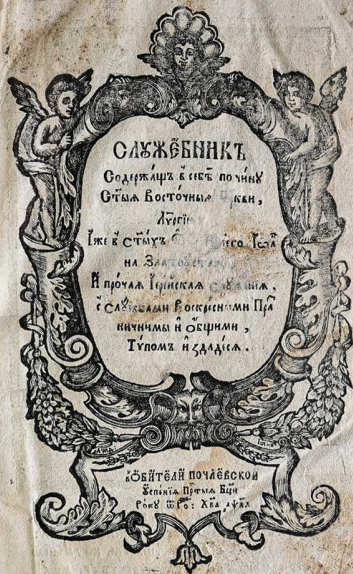 СЛꙊЖЕ́БНИКЪ
Содержащъ в̾ себѣ̀ по чи́нꙋ
Ст҃ы́ѧ Восто́чныѧ
Лїтꙋргїю
И҆́же в̾ ст҃ы́хъ
на Златоꙋстаго
И҆ про́чаѧ І҆ере́йскаѧ
с̾ слꙋжбами Воскресными Пра
ничнимы и҆ ѻ҆́бщими,
Тѵпомъ и҆здадесѧ.
в̾ ѻ҆би́тели почаевской
Оу҆спенїѧ Прⷭ҇тыѧ Бц҃ы
Рокꙋ ѿ Рож: Хв҃а